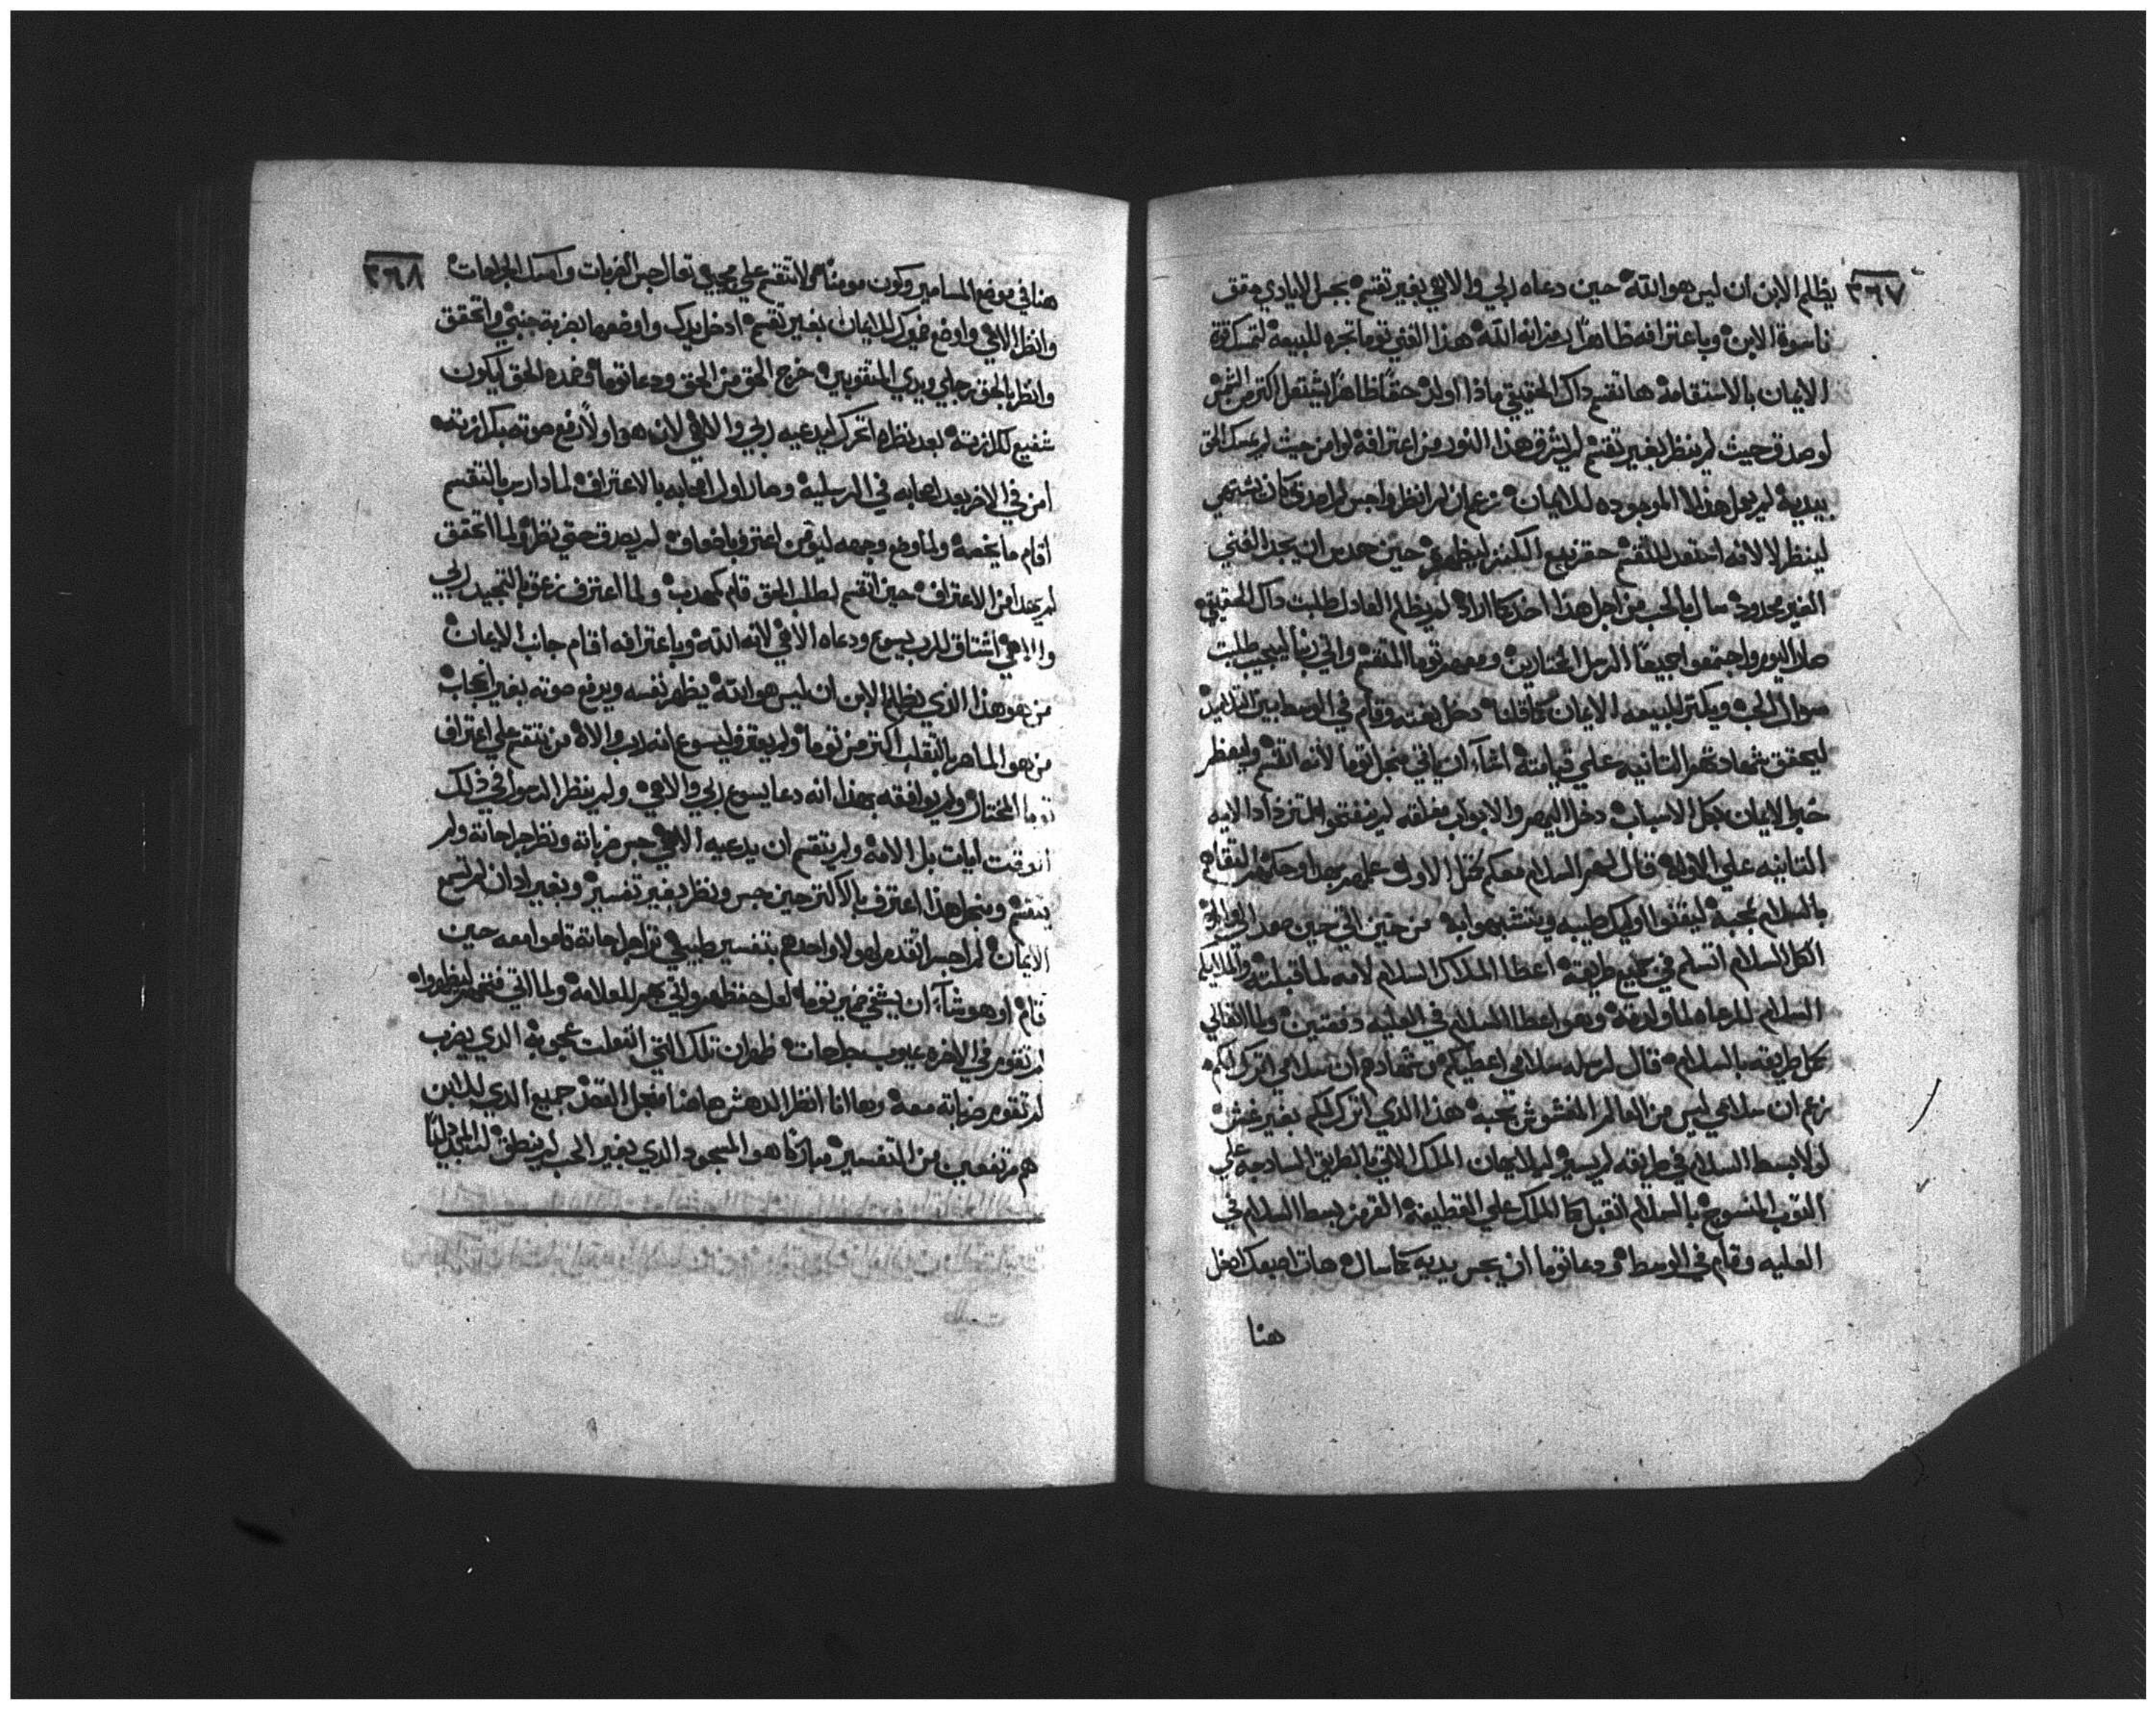 ٣٦٧
يظلم الابن ان ليس هو الله حين دعاه ربي والاهي بغير تقسم بجس الايادي حقق
ناسوة الابن وباعترافه ظاهرًا انه الله هذا الغني توما تجره للبيعه لتمسك قوة
الايمان بالاستقامه ها تقسم داك الحقيقي ماذا اولد حقًا ظاهرًا يشتعل اكتر من الشمس
لو صدق حيث لم ينظر بغير تقسم لم يشرق هذا النور من اعترافه لو امن حيث لم يمسك الحق
بيديه لم يعل هذا الموجوده للايمان زعم ان لم انظر واجس لم اصدق كان يشتهي
لينظر لا لانه استعد للتقسم
الغير محدود سال بالحب من اجل هذا اخد كما اراد لم يظلم العادل طلبت داك الحقيقي
صار اليوم واجتمعوا جميعًا الرسل المختارين ومعهم توما المتقسم واتي ربنا ليجيب طلبت
سوال الحب ويكتر للبيعه الايمان كما قلنا دخل بغته وقام في الوسط بين التلاميد
ليحقق شهادتهم التانيه علي قيامته اشآء ان ياتي منجل توما لانه اتقسم وليعظم
خبر الايمان بكل الاسباب دخل اليهم والابواب مغلقه لم تنفتح لتزداد الايه
التانيه علي الاوله قال لهم السلام معكم متل الاول علمهم
بالسلام بمحبه ليقتنوا اوليك طيبه ويتشبهوا به من حين اتي حين صعد الي
الكل السلام اتسلم في جميع طريقه اعطا الملاك السلام لامه لما قبلته والملايكه
السلام للرعاه لما ولدته وهو اعطا السلام في العليه دفعتين
كل طريقه بالسلام قال لرسله سلامي اعطيكم وشهادهم ان سلامي اترك لكم
زعم ان سلامي ليس من العالم المغشوش بمحبه هذا الذي اترك لكم بغير غش
لولا بسط السلام في طريقه لم يسير لم لايمان الملك الاتي بالطريق السادجه علي
التوب المنسوج بالسلام اتقبل كما الملك علي القطيفه القرمز بسط السلام في
العليه وقام في الوسط ودعا توما ان يجس يديه كما سال هات اصبعك ادخل
هنا
٣٦٨
هنا في موضع المسامير وكون مومنًا ولا تتقسم علي مجيي تعال جس الضربات وامسك الجراحات
وانظر الاهي واوضع ضميرك للايمان بغير تقسم ادخل يدك واوضعها بضربة جنبي واتحقق
وانظر بالحق رجلي ويدي المتقوبين خرج الحق من الحق ودعا توما وضمده الحق ليكون
شفيع لكل ازيته بعد نظره اتحرك ليدعيه ربي والاهي لان هو اولًا رفع صوته بكرازته
امن في الاخر بعد اصحابه في الرسليه وصار اول اصحابه بالاعتراف لما دارس بالتقسم
اقام ما يخصه ولما وضع وجهه ليؤمن اعترف باضعاف لم يصدق حتي نظر ولما اتحقق
لم يهدا من الاعتراف حين اتقسم لطلب الحق قام كمهدب ولما اعترف زعق بالتمجيد ربي
والاهي اشتاق للرب يسوع ودعاه الاهي لانه الله وباعترافه اقام جانب الايمان
من هو هذا الذي يظلم الابن ان ليس هو الله يظهر نفسه ويرفع صوته بغير اعجاب
من هو الماهر بالتقلب اكتر من توما ولم يعترف ليسوع انه رب والاه من يتقسم علي اعتراف
توما المختار ولم يوافقه بهذا انه دعا يسوع ربي والاهي ولم ينظر الدعوا في ذلك
الوقت ايات بل الامه ولم يتقسم ان يدعيه الاهي جس ضرباته ونظر جراحاته ولم
يتقسم ومنجل هذا اعترف بالاكتر حين جس ونظر بغير تفسير وبغير ادان لم تسمع
الايمان لم احسر اتقدم لهولا واحدهم بتفسير طبيعي تراهل جراحاته قاموا معه حين
قام او هو شآء ان يشفي ضمير توما لعل حفظهم واتي بهم للعلامه ولما اتي فتحهم لينظروا
لم تقوم في الاخره عيوب بجراحات ظهر ان تلك التي اتفعلت عجوبه الذي يضرب
لم تقوم ضرباته معه وها انا انظر الدهش هاهنا منجل القصد جميع الذي للابن
هم مرتفعين من التفسير مباركًا هو المسجود الذي بغير الحب لم ينطق له المجد دايمًا